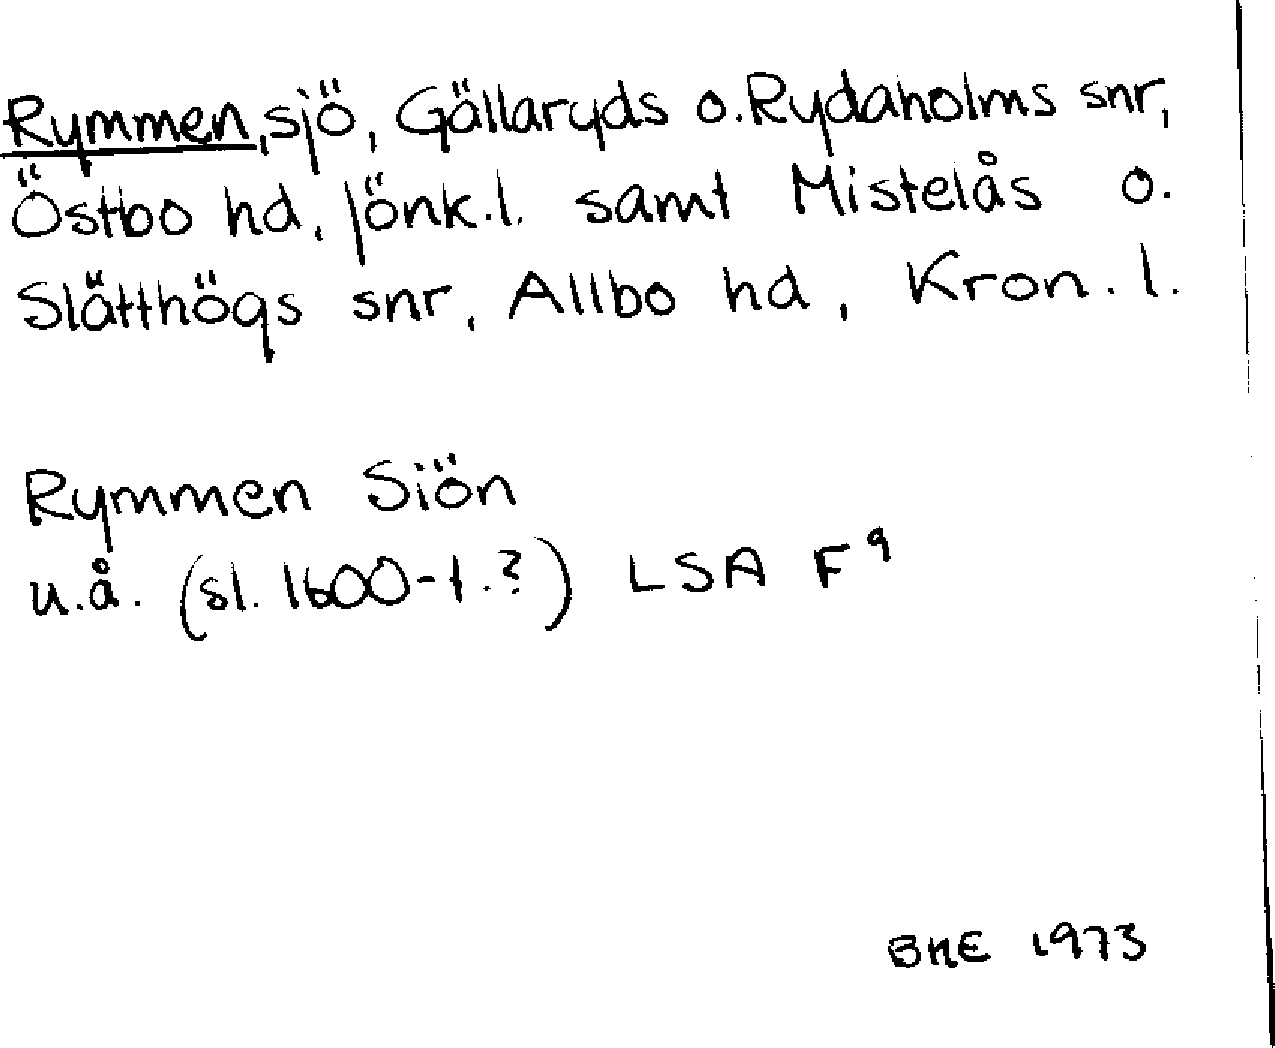 Rymmen, sjö, Gällaryds o. Rydaholms snr,
Östbo hd, Jönk.l. samt Mistelås o.
Slätthögs snr, Allbo hd, Kron.l.
Rymmen Siön
u.å. (sl. 1600-t.?) LSA F⁹
BHE 1973